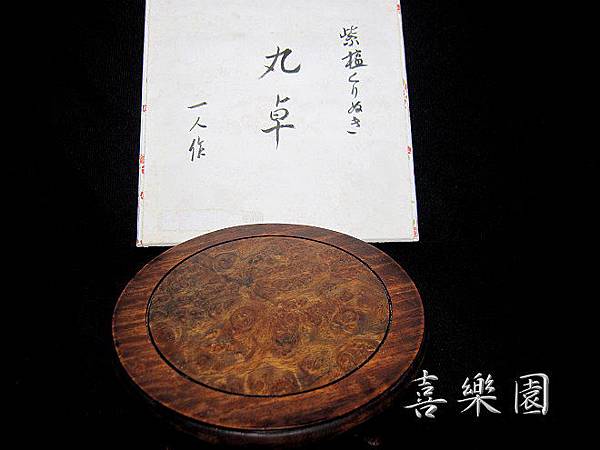 紫檀くりぬき
丸卓
一人作
喜樂園